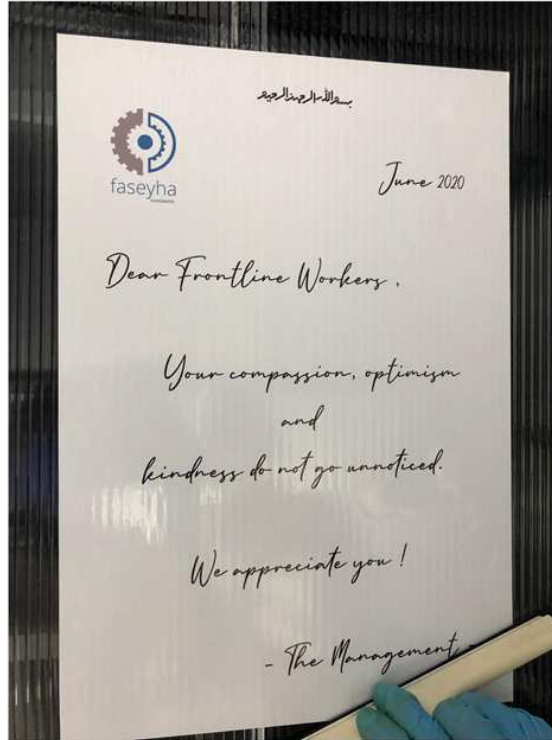 بسم الله الرحمن الرحيم
faseyha
June 2020
Dear Frontline Workers,
Your compassion, optimism
and
kindness do not go unnoticed.
We appreciate you!
- The Management -